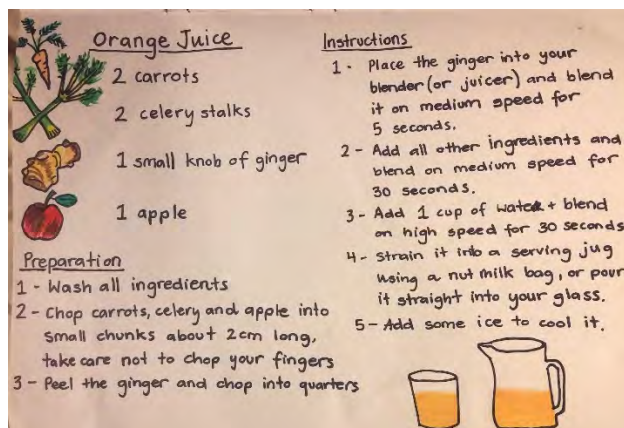 Orange Juice
2 carrots
2 celery stalks
1 small knob of ginger
1 apple
Preparation
1 - Wash all ingredients
2 - Chop carrots, celery and apple into
small chunks about 2cm long,
take care not to chop your fingers
3 - Peel the ginger and chop into quarters
Instructions
1 - Place the ginger into your
blender (or juicer) and blend
it on medium speed for
5 seconds.
2 - Add all other ingredients and
blend on medium speed for
30 seconds.
3 - Add 1 cup of water + blend
on high speed for 30 seconds
4 - Strain it into a serving jug
using a nut milk bag, or pour
it straight into your glass.
5 - Add some ice to cool it.